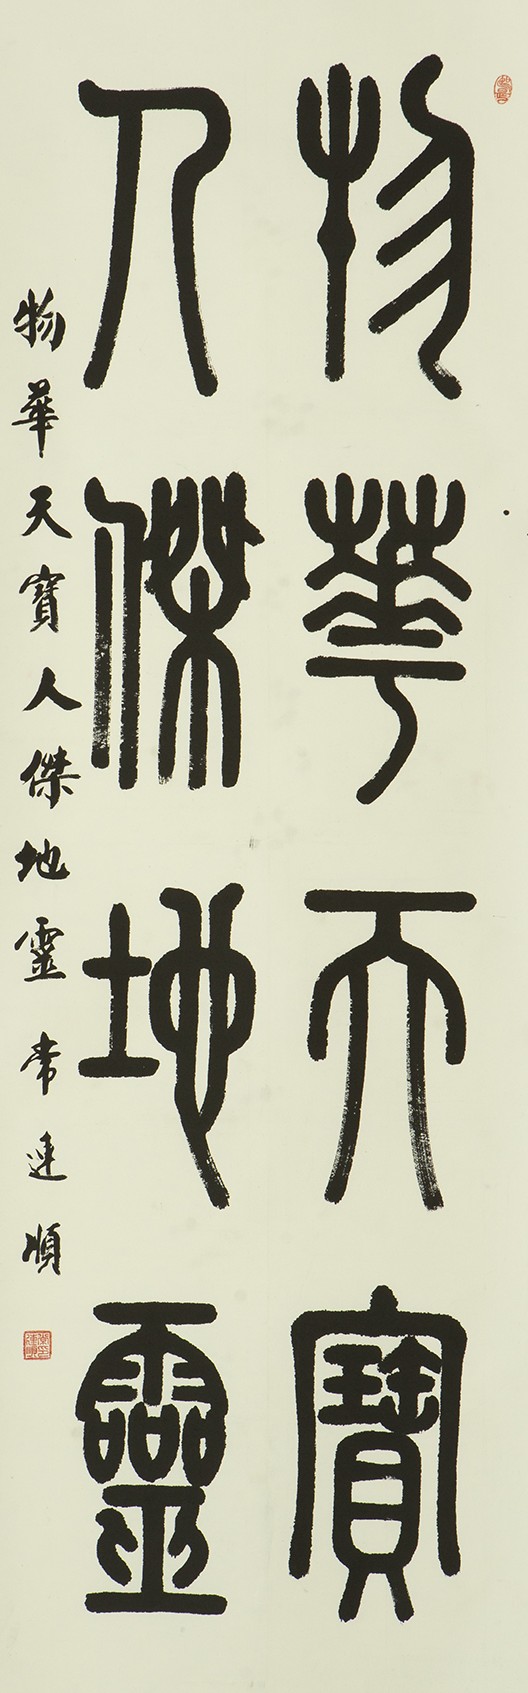 物華天寶
人傑地靈
物華天寶人傑地靈常連順